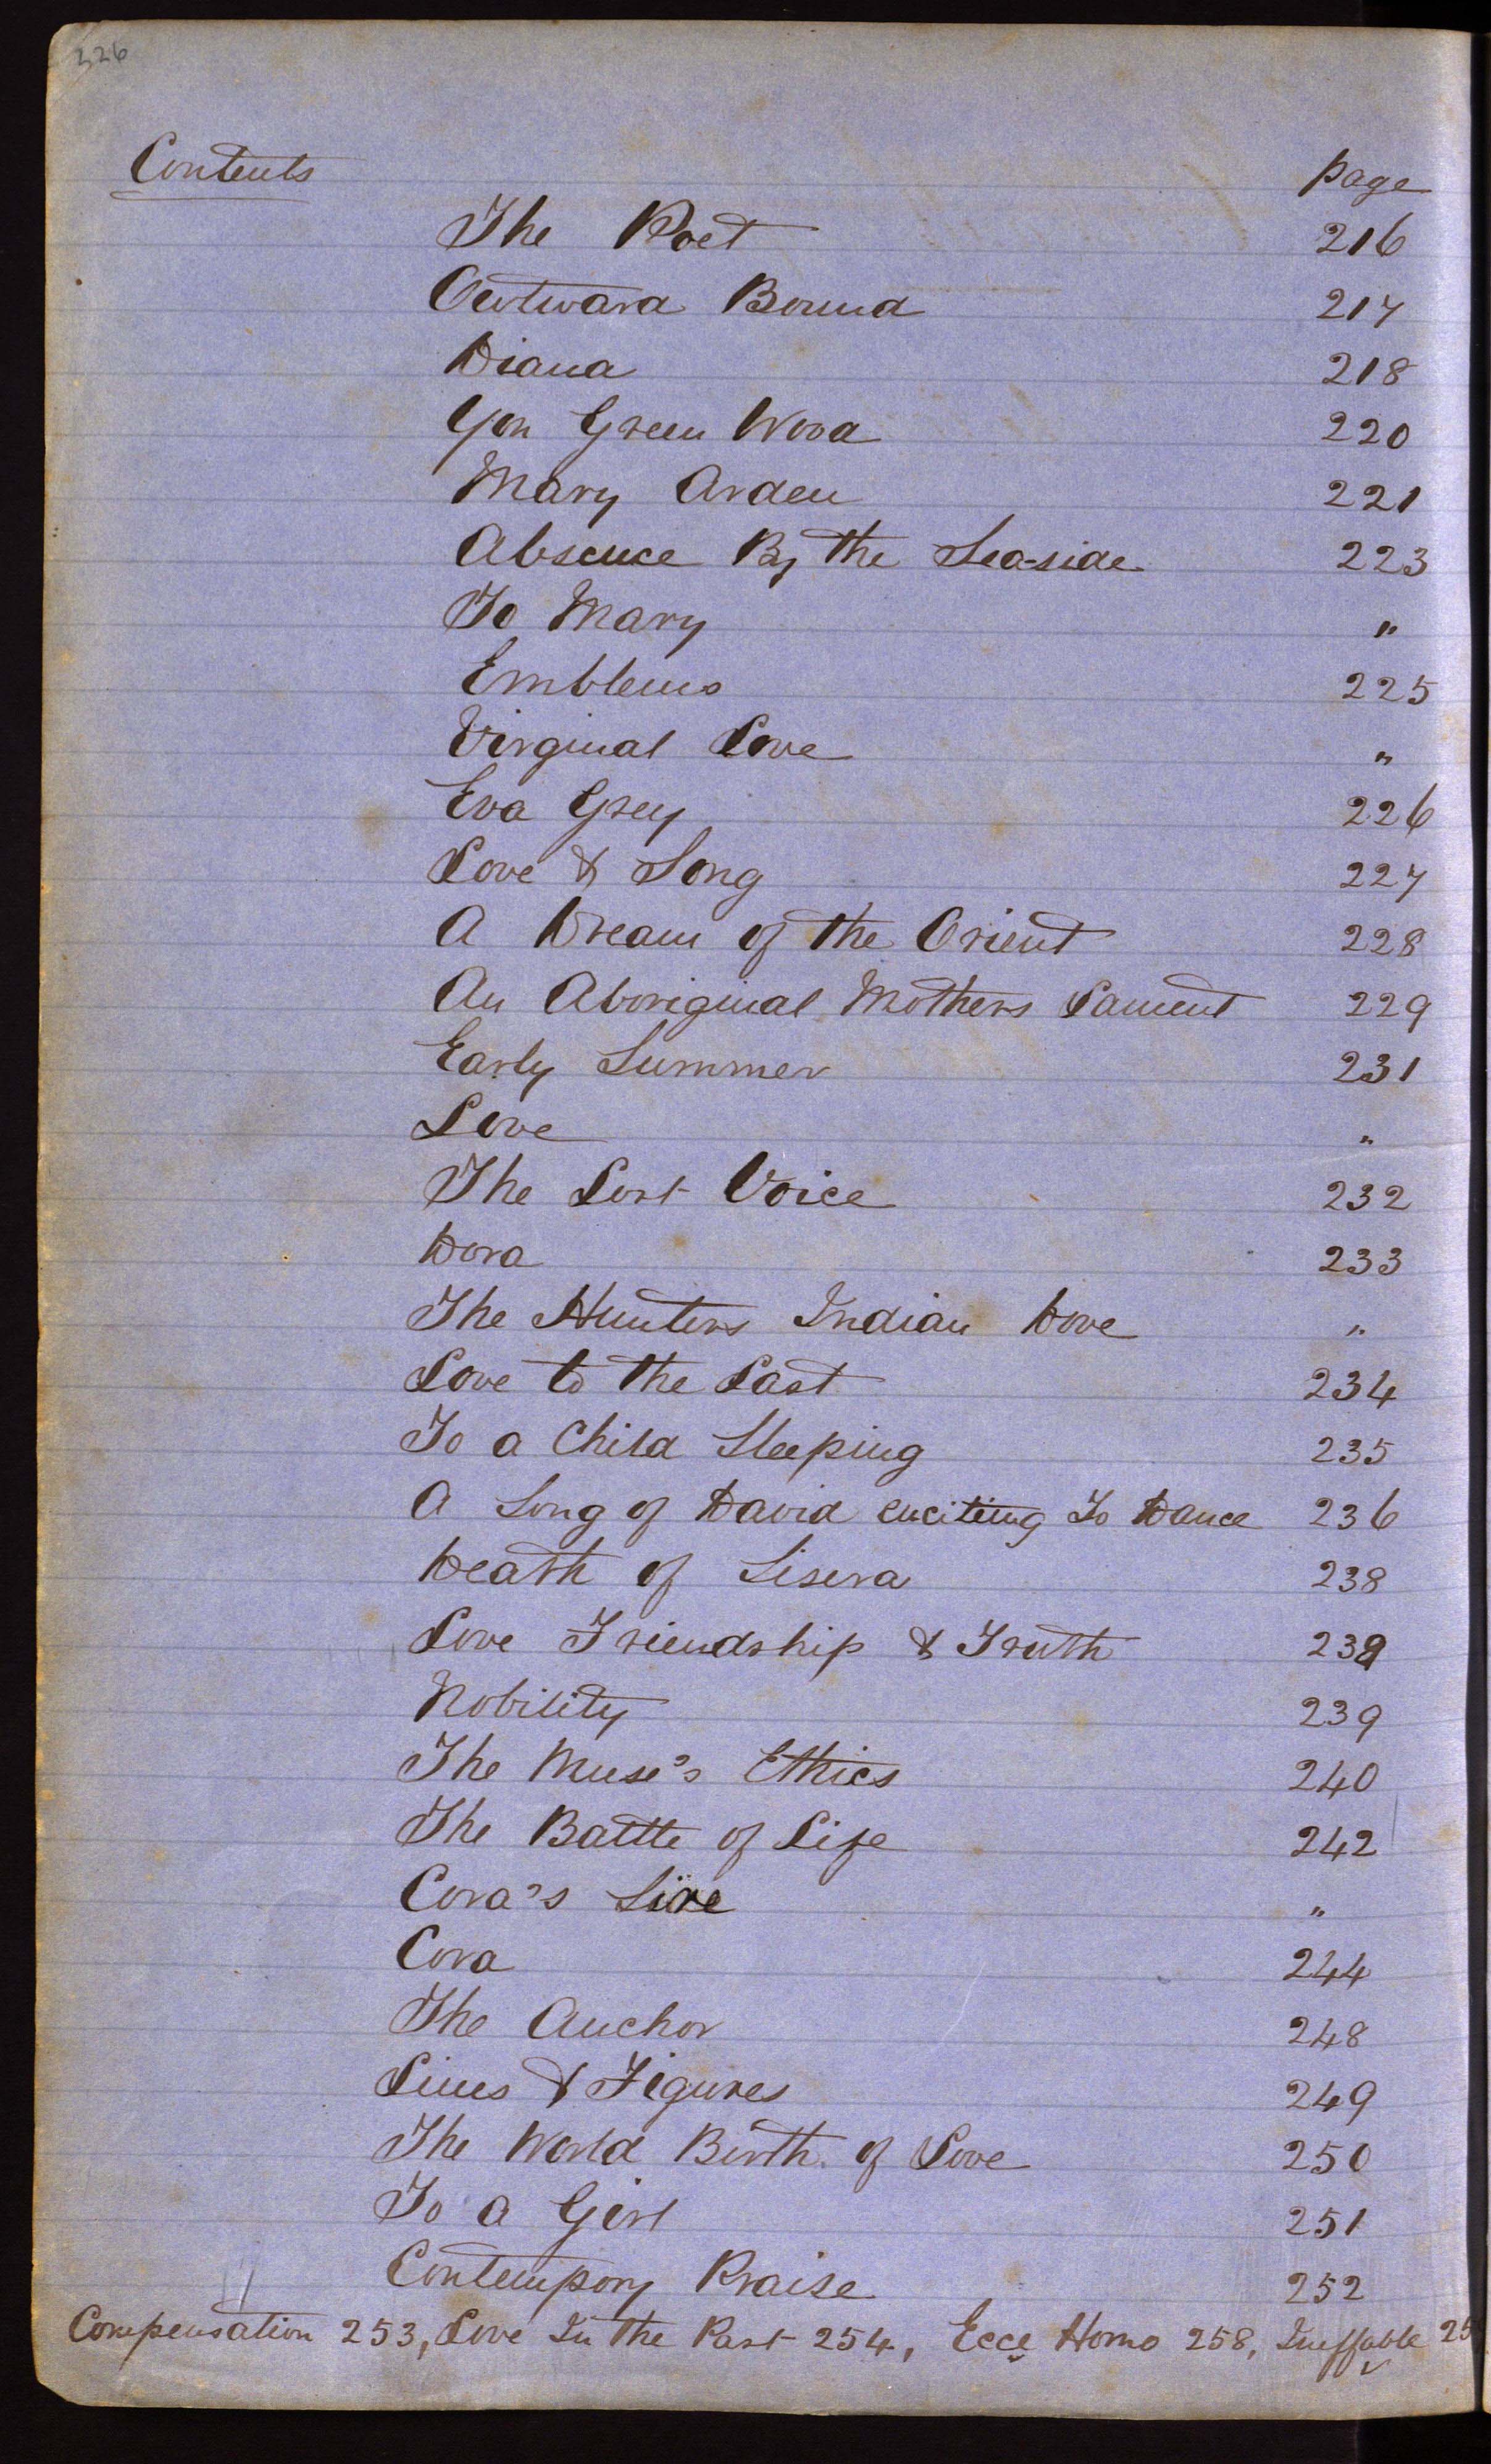 326
Contents page
The Poet 216
Outward Bound 217
Diana 218
Yon Green Wood 220
Mary Arden 221
Absence By the Sea-side 223
To Mary "
Emblems 225
Virginal Love "
Eva Grey 226
Love & Song 227
A Dream of the Orient 228
An Aboriginal Mothers Lament 229
Early Summer 231
Love "
The Lost Voice 232
Dora 233
The Hunters Indian Dove "
Love to the Last 234
To a Child Sleeping 235
A Song of David enciting To Dance 236
Death of Sisera 238
Love Friendship & Truth 239
Nobility 239
The Muse's Ethics 240
The Battle of Life 242
Cora's "
Cora 244
The Anchor 248
Lines & Figures 249
The World Birth of Love 250
To a Girl 251
Contempory Praise 252
Compensation 253, Love In the Past 254, Ecce Homo 258, Ineffable 25